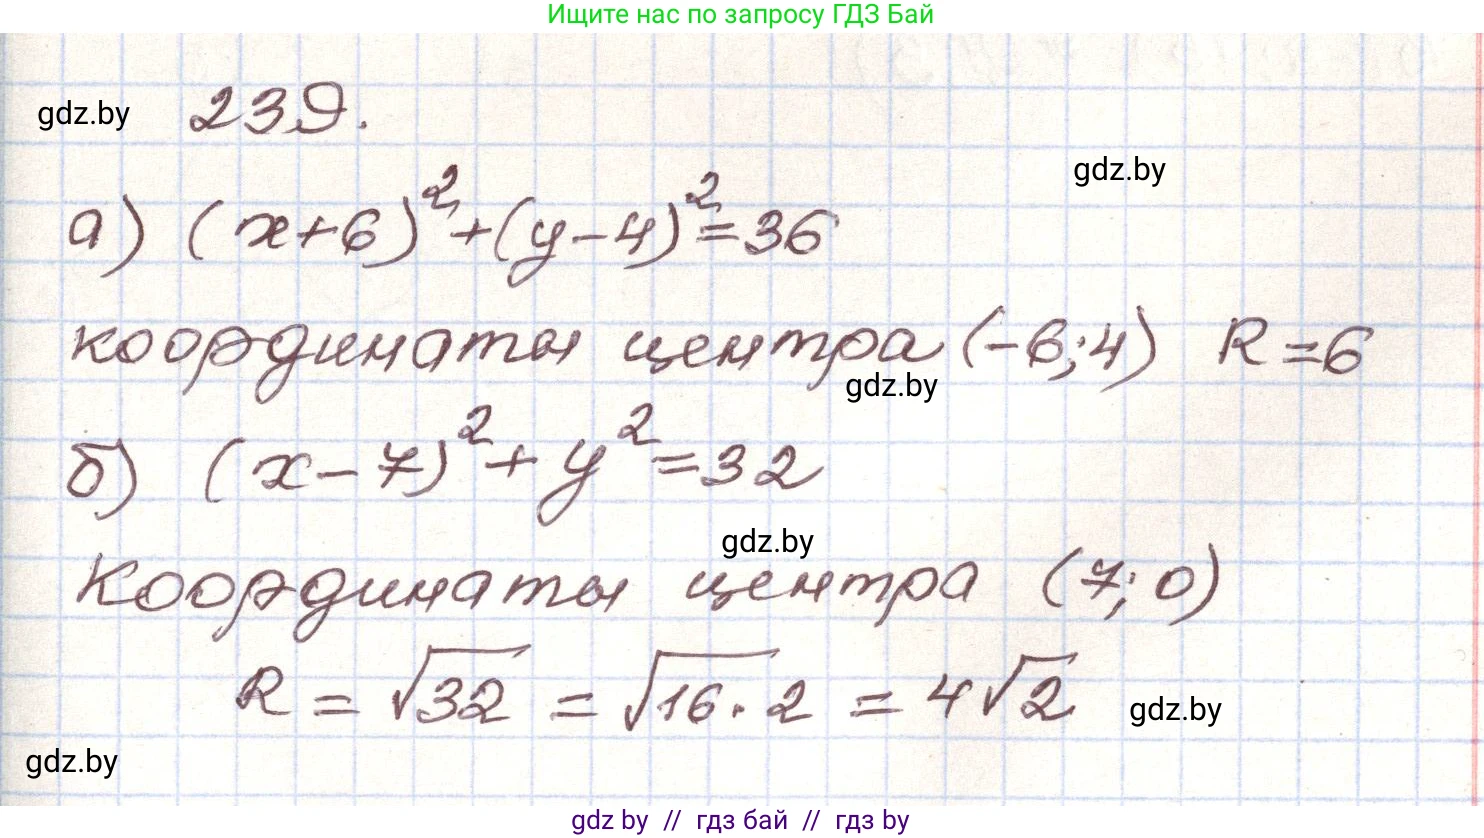 Ищите нас по запросу ГДЗ Бай
gdz.by
239.
gdz.by
а) (x+6)²+(y-4)²=36
координаты центра (-6;4) R=6
gdz.by
б) (x-7)²+y²=32
gdz.by
Координаты центра (7;0)
R = √32 = √16·2 = 4√2
gdz.by
gdz.by
gdz by // гдз бай // гдз by